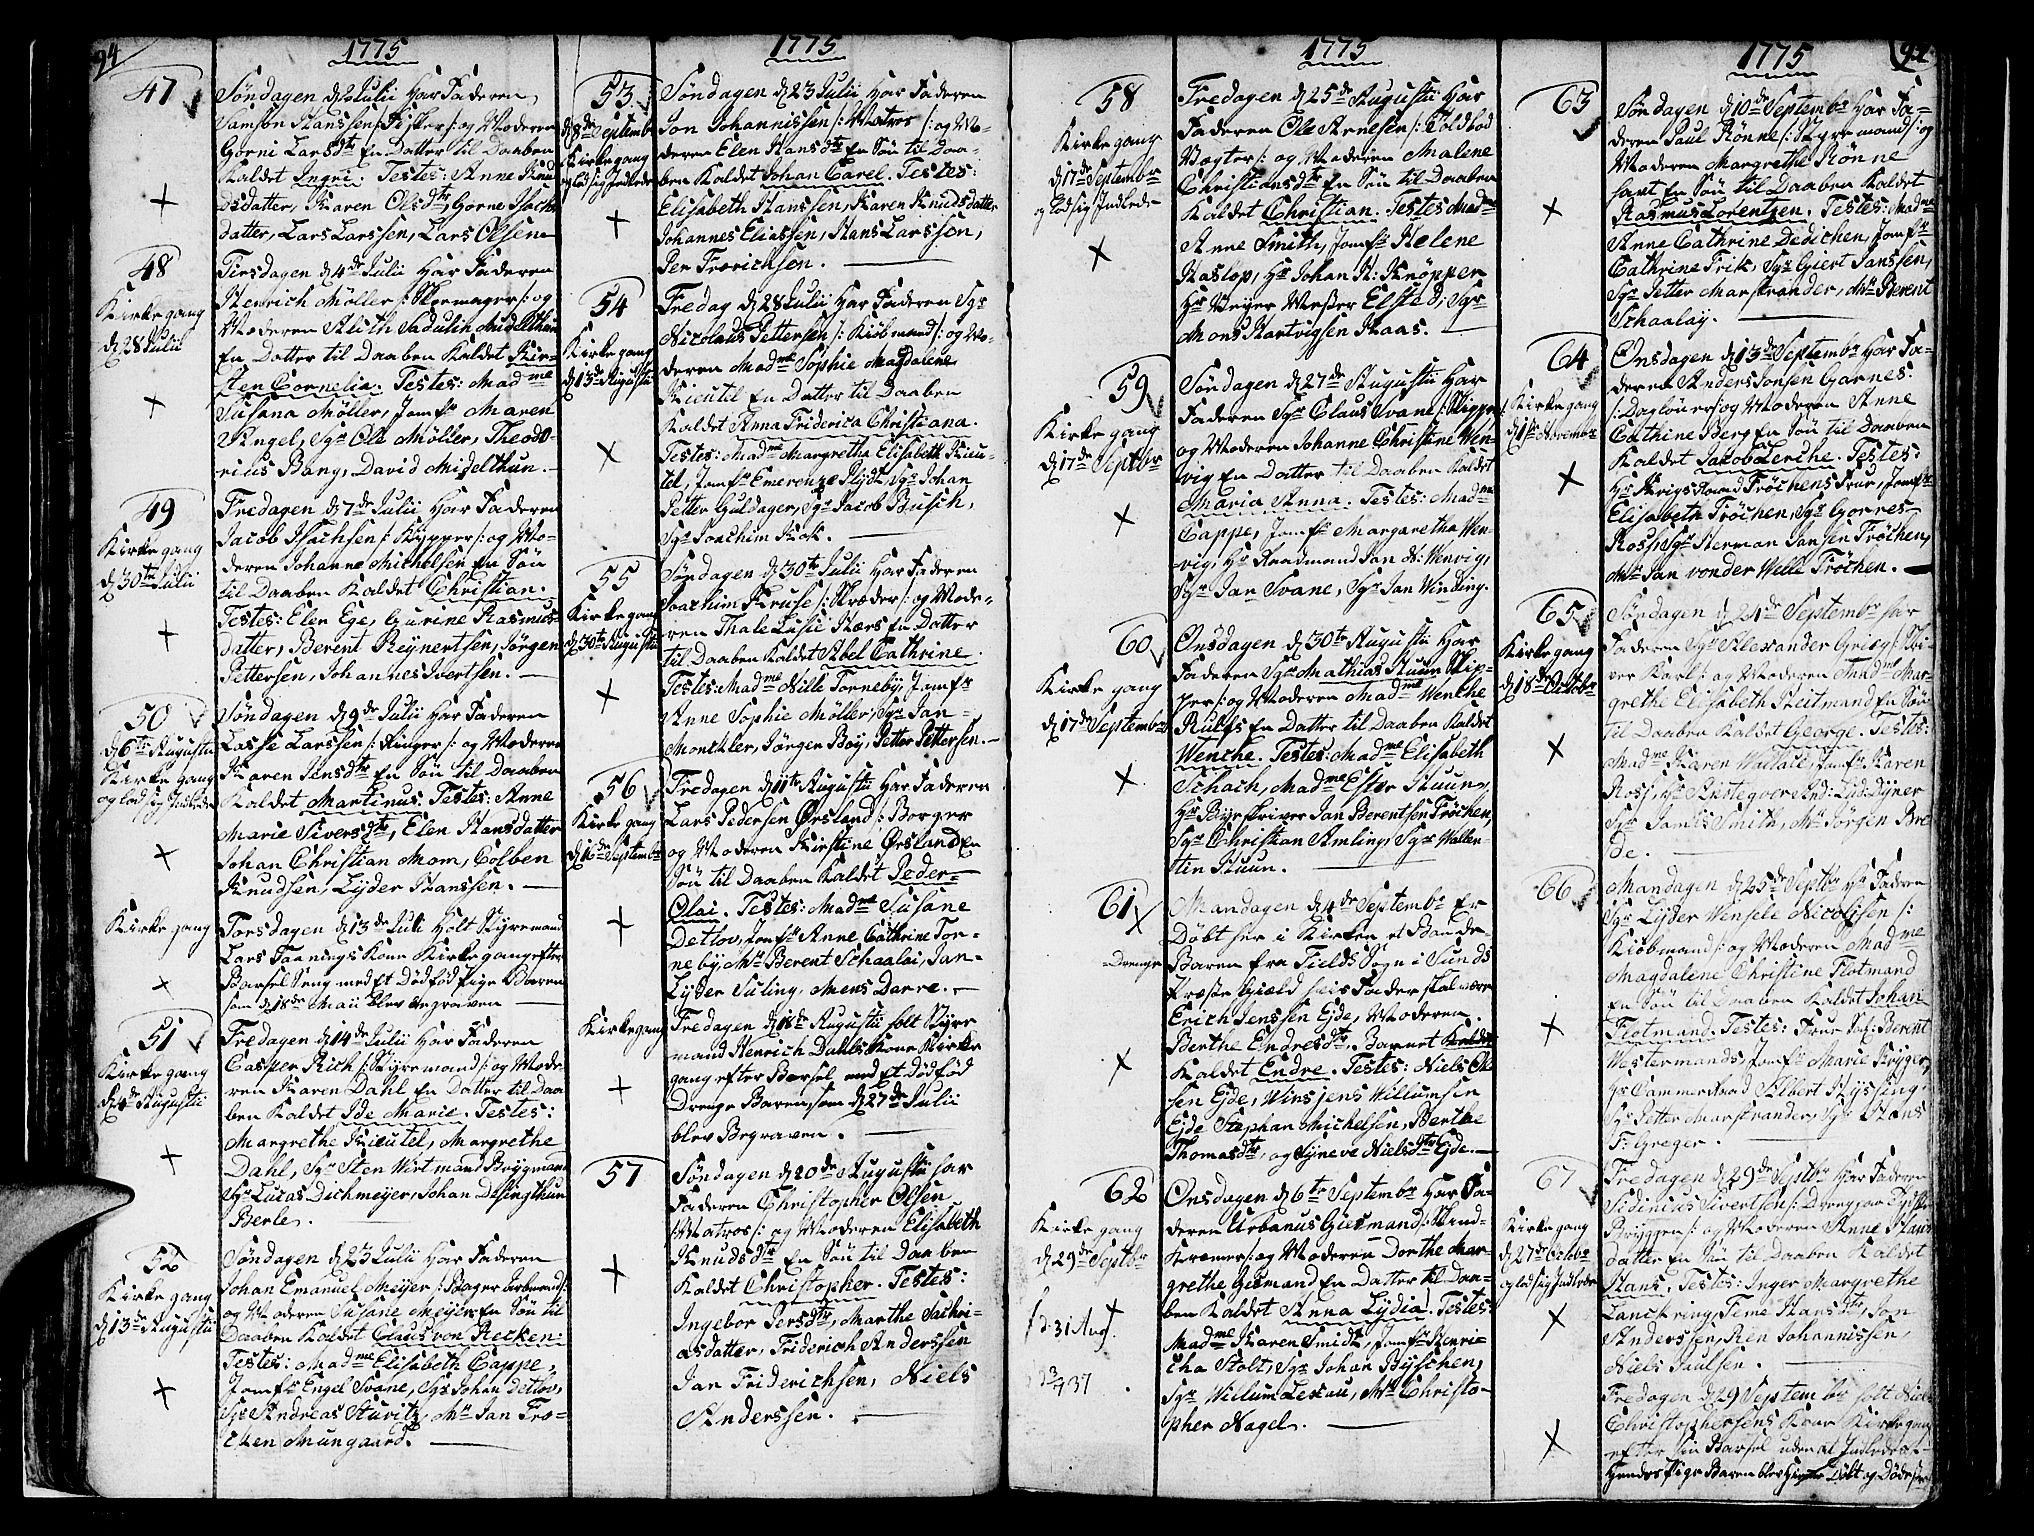 94
1775
47
Søndagen d. 2 Julii Har Faderen
Samson Hanssen /: Fisker :/ og Moderen
Gorni Larsdtr En Datter til Daaben
Kaldet Ingri. Testes: Anne Knu
dsdatter, Karen Olsdtr Gorne Isachs
datter, Lars Larssen, Lars Olsen
48
Kirke gang
d. 28 Julii
Tirsdagen d. 4de Julii Har Faderen
Henrich Möller /: Skomager :/ og
Moderen Alith Sadulin Midelthun
En Datter til Daaben Kaldet Kir-
sten Cornelia. Testes: Madme
Susana Möller, Jomfr Maren
Angel, Sgr Ole Möller, Theodo-
rius Bang, David Midelthun.
49
Kirke gang
d. 30te Julii
Fredagen d. 7de Julii Har Faderen
Jacob Isachsen /: Kypper :/ og Mo-
deren Johanne Michelsen En Søn
til Daaben Kaldet Christian.
Testes: Elen Ege, Gurine Rasmus-
datter, Berent Reynertsen, Jørgen
Pettersen, Johannes Ivertsen.
50
d. 6te Augusti
Kirke gang
og lod sig Indlede
Søndagen d. 9de Julii Har Faderen
Lasse Larssen /: Ringer :/ og Moderen
Karen Jensdtr En Søn til Daaben
Kaldet Martinus. Testes: Anne
Marie Siversdtr, Elen Hansdatter
Johan Christian Mom, Colben
Knudsen, Lyder Hanssen.
Kirke gang
Torsdagen d. 13de Juli Holt Styrmand
Lars Taanings Kone Kirke gang efter
Barsel Seng med Et Dödföd Pige Baren
som d. 18de Maii blev Begraven
51
Kirke gang
d. 4de Augustii
Fredagen d. 14de Julii Har Faderen
Casper Rich /: Styremand :/ og Mode-
ren Karen Dahl En Datter til Daa
ben Kaldet Ide Marie. Testes:
Margrethe Kieutel, Margrethe
Dahl, Sgr Sten Wirtmand Brygmand
Hr Lucas Dichmeyer, Johan Desingthun
Berle.
52
Kirke gang
d. 13de Augustii
Søndagen d. 23 Julii Har Faderen
Johan Emanuel Meyer /: Bager
og Moderen Susane Meyer En Søn til
Daaben Kaldet Claus von Recken:
Testes: Madme Elisabeth Cappe,
Jomfr Engel Svane, Sgr Johan Detlov,
Sgr Andreas Sturitz, Mr Jan Fro-
chen Mungaard.
1775
53
d. 8de Septembr
Kirke gang
og lod sig Indlede
Søndagen d. 23 Julii Har Faderen
Jon Johannissen /: Matros :/ og Mo-
deren Elen Hansdtr En Søn til Daa-
ben Kaldet Johan Carel. Testes:
Elisabeth Hanssen, Karen Knudsdatter
Johannes Eliassen, Hans Larssen,
Per Frorichsen.
54
Kirke gang
d. 13de Augustii
Fredag d. 28 Julii Har Faderen Sgr
Nicolaus Pettersen /: Kiöbmand :/ og Mo-
deren Madme Sophie Magdalene
Kieutel En Datter til Daaben
Kaldet Anna Friderica Christiana.
Testes: Madme Margretha Elisabeth Kieu-
tel, Jomfr Emerenze Slydt, Sgr Johan
Petter Guldager, Sgr Jacob Busch,
Sgr Joachim Kok.
55
Kirke gang
d. 30te Augustii
Søndagen d. 30te Julii Har Faderen
Joachim Kruse /: Skræder :/ og Mode-
ren Thale Lusie Hærs En Datter
til Daaben Kaldet Abel Cathrine.
Testes: Madme Nille Torneby, Jomfr
Anne Sophie Möller, Sgr Jan
Monchler, Jörgen Boy, Petter Pettersen.
56
Kirke gang
d. 16de Septembr
Fredagen d. 11te Augustii Har Faderen
Lars Pedersen Ørsland /: Borger
og Moderen Kirstine Ørsland En
Søn til Daaben Kaldet Peder
Olai. Testes: Madme Susane
Detlov, Jomfr Anne Cathrine Tor-
neby, Mr Berent Schaalai, Jan-
Lyder Suling, Mens Darre.
Kirke gang
Fredagen d. 18de Augustii holt Styr
mand Henrich Dahls Kone Kirke
gang efter Barsel med Et dödföd
Drenge Baren, som d. 27de Julii
blev Begraven.
57
Søndagen d. 20de Augustii har
Faderen Christopher Olsen
/: Matros :/ og Moderen Elisabeth
Knudsdtr En Søn til Daaben
Kaldet Christopher. Testes:
Ingebor Persdtr, Marthe Sachri-
asdatter, Friderich Anderssen
Jan Friderichsen, Niels
Anderssen.
1775
58
Kirke gang
d. 17de Septembr
og lod sig Indlede
Fredagen d. 25de Augustii Har
Faderen Ole Arnesen /: Toldbod
Vægter :/ og Moderen Malene
Christiansdtr En Søn til Daaben
Kaldet Christian. Testes Madme
Anne Smith, Jomfr Helene
Haslop, Hr Johan H: Knöpper
Hr Meyer Mester Elsted, Sgr
Mons Hartvigsen Haas.
59
Kirke gang
d. 17de Septbr
Søndagen d. 27de Augustii Har
Faderen Sgr Claus Svane /: Skipper :/
og Moderen Johanne Christine Wen-
vig En Datter til Daaben Kaldet
Maria Anna. Testes: Madme
Cappe, Jomfr Margaretha Wen-
vig, Hr Raadmand Jan H: Wenvig,
Sgr Jan Svane, Sgr Jan Winding.
60
Kirke gang
d. 17de Septembr
Onsdagen d. 30te Augustii Har
Faderen Sgr Mathias Stuun /: Skip-
per :/ og Moderen Madme Wenche
Rulfs En Datter til Daaben Kaldet
Wenche. Testes: Madme Elisabeth
Schach, Madme Ester Stuun,
Hr Byeskriver Jan Berentsen Fröchen,
Sgr Christian Amling, Sgr Wallen-
tin Stuun.
61
Drenge
Mandagen d. 4de Septembr Er
Döbt her i Kirken et Bonde-
Baren fra Fields Sogn i Sunds
Præste gield hvis Fader skal være
Erich Jenssen Ejde, Moderen
Berthe Endresdtr, Barnet
Kaldet Endre. Testes: Niels Ol
sen Ejde, Winsjens Willumsen
Ejde Stephan Michelsen, Berthe
Thomasdtr, og Syneve Nielsdtr Ejde.
62
Kirke gang
d. 29de Septbr
d. 31 Aug.
Onsdagen d. 6te Septembr Har Fa-
deren Urbanus Giesmand /: Skind-
Kremer :/ og Moderen Dorthe Mar-
grethe Gismand En Datter til Daa-
ben Kaldet Anna Lydia. Testes:
Madme Karen Smidt, Jomfr Henri-
cha Stolt, Sgr Johan Byschen,
Sgr Willum Leskau, Mr Christo-
pher Nagel.
1775
63
Søndagen d. 10de Septembr Har Fa-
deren Paul Rönne /: Styremand :/ og
Moderen Margrethe Rönne
havt En Søn til Daaben Kaldet
Rasmus Lorentzen. Testes: Madme
Anne Cathrine Dedichen, Jomfr
Cathrine Frik, Sgr Giert Janssen,
Sgr Petter Marstrander, Mr Berent
Schaalay.
64
Kirke gang
d. 1te Novembr
Onsdagen d. 13de Septembr Har Fa-
deren Anders Jonsen Garnes:
/: Daglöner :/ og Moderen Anne
Cathine Berg En Søn til Daaben
Kaldet Jacob Lerche. Testes:
Hr Krigs Raad Fröchens Frue, Jomfr
Elisabeth Fröchen, Sgr Gorres
Ross, Sgr Herman Jansen Fröchen,
Mr Jan vonder Welle Fröchen.
65
Kirke gang
d. 18de Octobr
Søndagen d. 24de Septembr har
Faderen Sgr Alexander Grieg /: Skri-
ver Karl :/ og Moderen Madme Mar-
grethe Elisabeth Steitmand En Søn
til Daaben Kaldet George. Testes:
Madme Karen Wallace, Jomfr Karen
Ross, Hr And: Lyd: Dyner
Sgr Jamis Smith, Mr Jörgen Bre
de.
66
Mandagen d. 25de Septbr Hr Faderen
Sgr Lyder Wensele Nicolisen /:
Kiöbmand :/ og Moderen Madme
Magdalene Christine Flotmand
En Søn til Daaben Kaldet Johan
Flotmand. Testes: Frue Berent
Westermands Jomfr Marie Kryger,
Hr Cammerraad Albert Hyssing
Sgr Petter Marstrander, Sgr Hans
F: Greger.
67
Kirke gang
d. 27de Octobr
og lod sig Indlede
Fredagen d. 29de Septbr Har Faderen
Sidenius Sivertsen /: Dreng paa Tydske
Bryggen :/ og Moderen Anne Hans
datter En Søn til Daaben Kaldet
Hans. Testes: Inger Margrethe
Lanckring, Hansdtr, Jon
Anderssen, Johannissen,
Niels Paulsen.
Fredagen d. 29 Septembr holt Niels
Christophersens Kone Kirke gang
efter sin Barsel uden at Indledes
Hendes Pige Baren blev Döbt og Döde